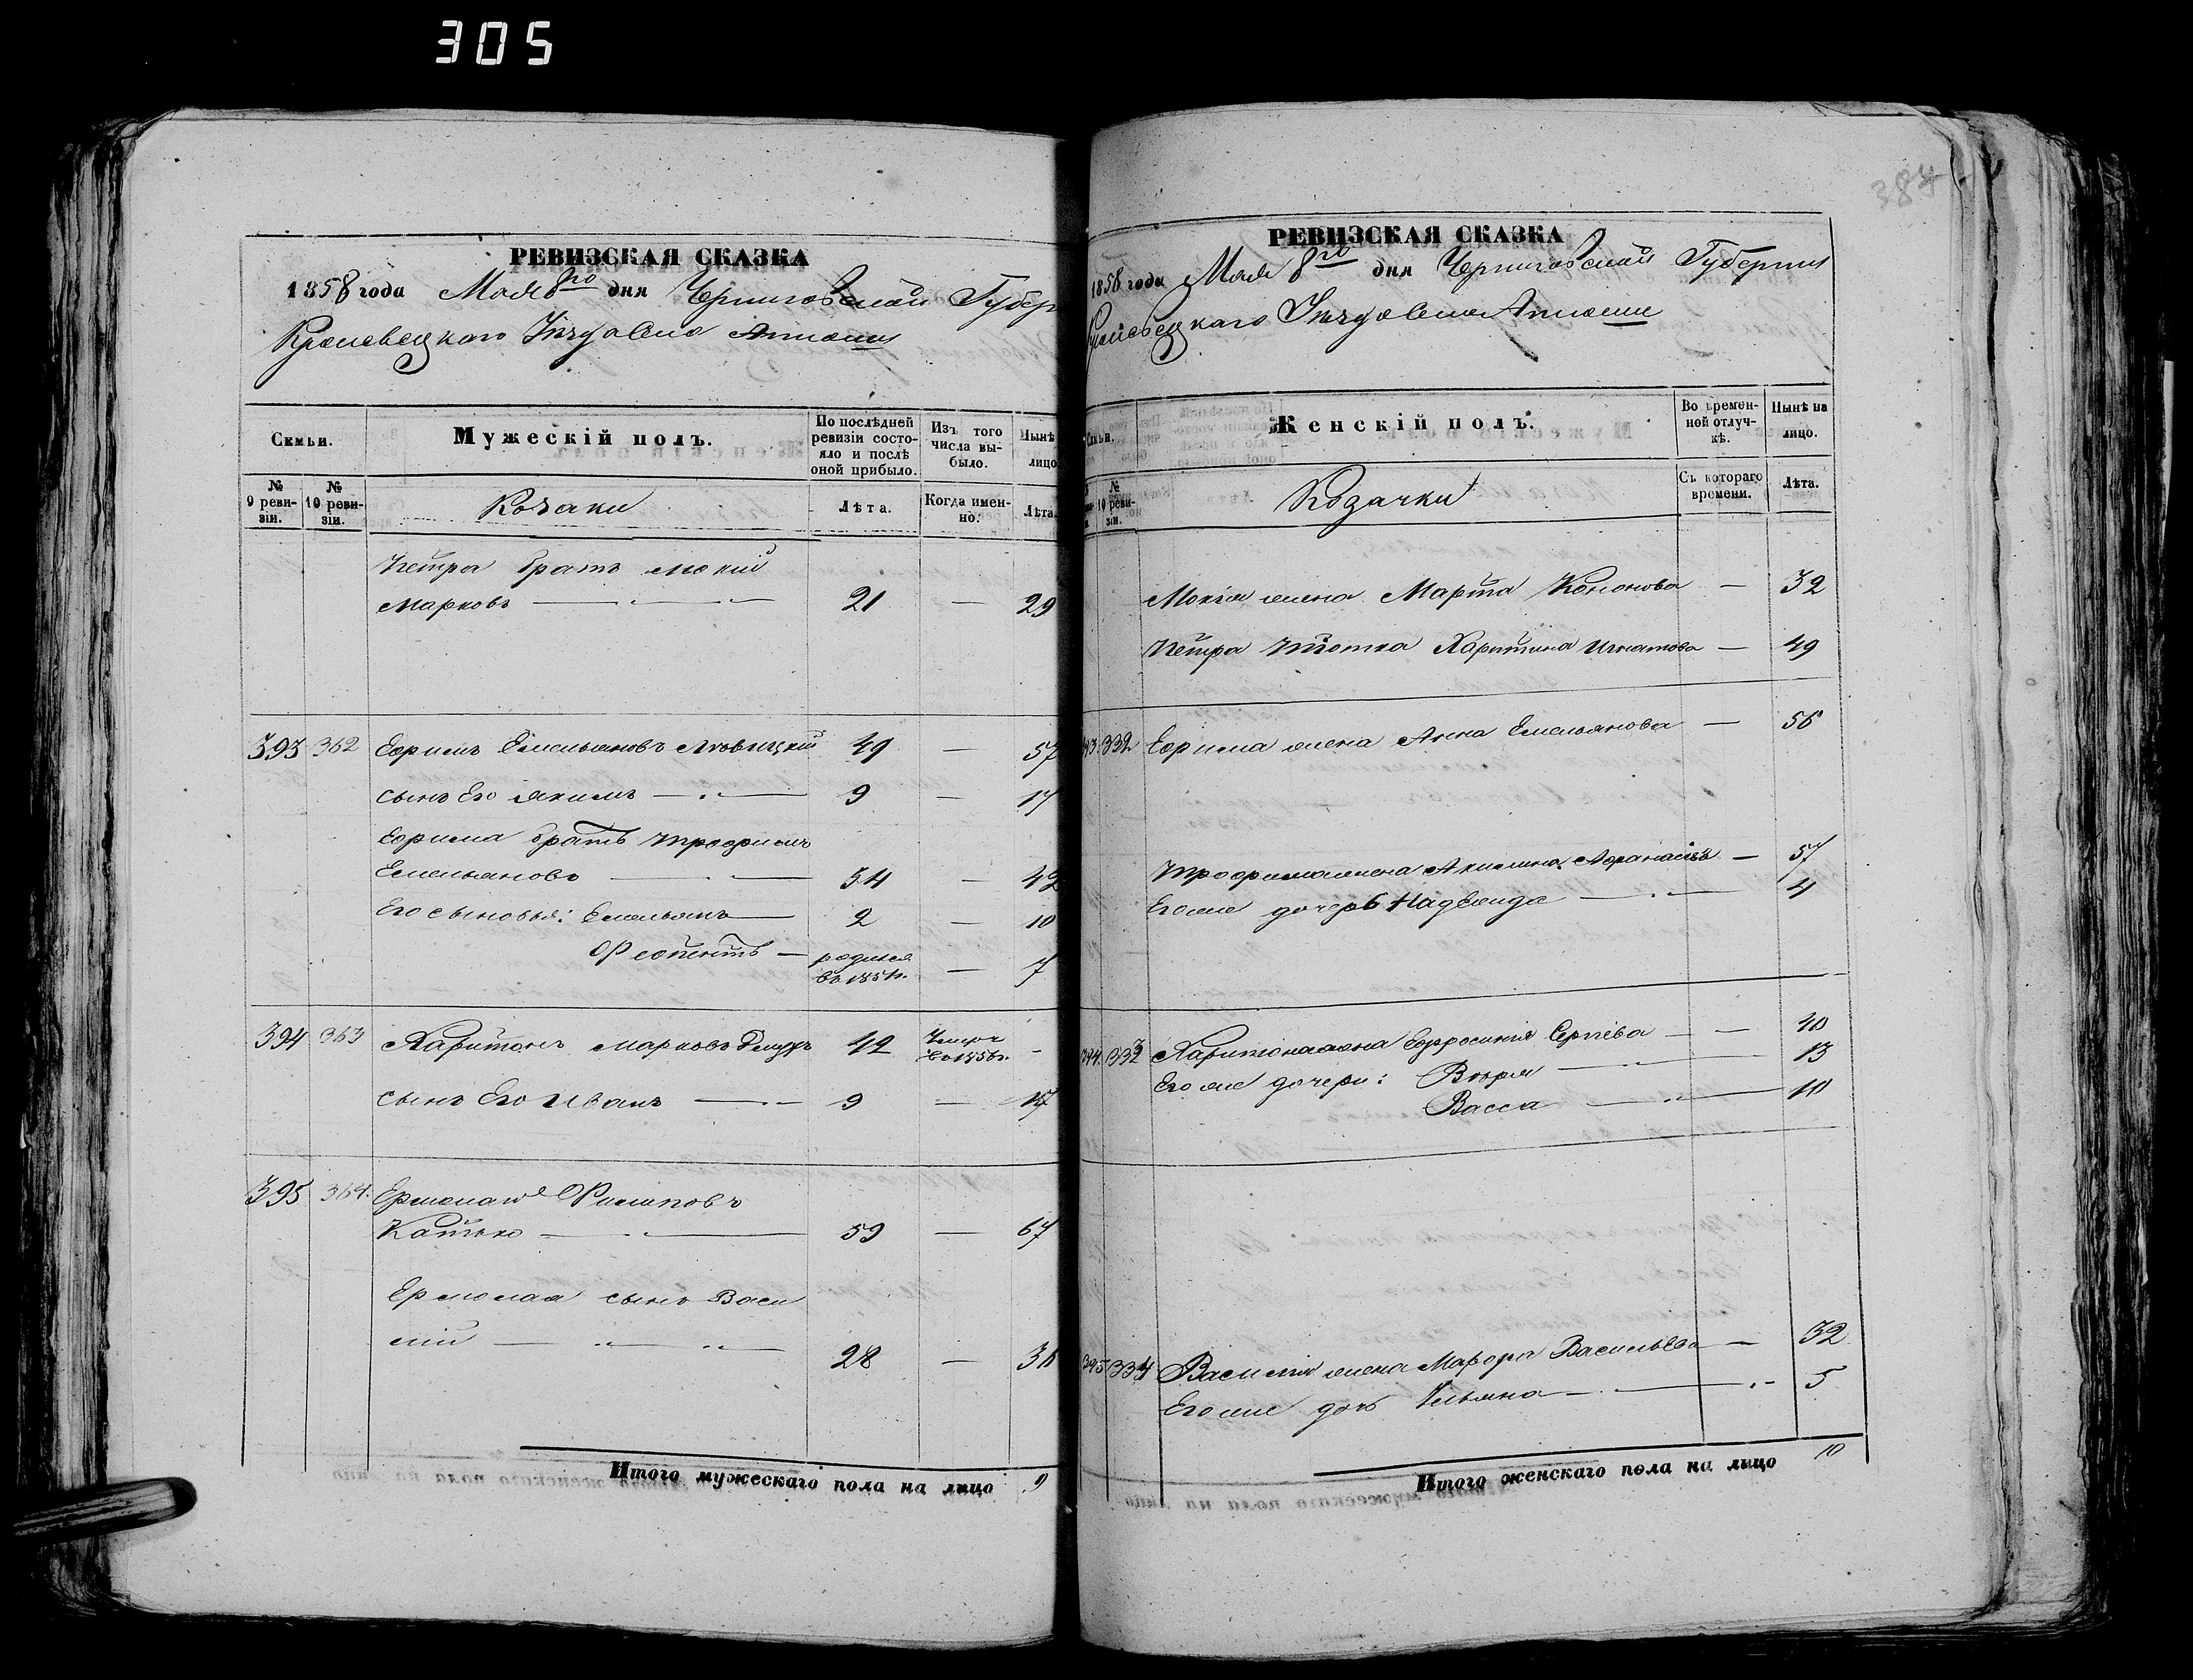 305
384
РЕВИЗСКАЯ СКАЗКА
1858 года Мая 8го дня Черниговской Губер
Кролевецкаго Уезда села
Семьи.
Мужескій полъ.
По послѣдней ревизіи состояло и послѣ оной прибыло.
Изъ того числа выбыло.
Нынѣ лицо
№ 9 ревизіи.
№ 10 ревизіи.
Козаки
Лѣта.
Когда именно.
Лѣта.
Петра братъ Мокій
Марковъ — 21 — 29
393 362 Ефимъ Емельяновъ 49 — 57
сынъ Его Якимъ — 9 — 17
Ефима братъ Трофимъ
Емельяновъ — 34 — 42
Его сыновья: Емельянъ — 2 — 10
Феопентъ — родился въ 1851г. — 7
394 363 Харитонъ Марковъ 42 Умеръ въ 1856г. -
сынъ Его Иванъ — 9 — 17
395 364. Ермолай Филиповъ
Катько — 59 — 67
Ермолая сынъ Васи
лій — 28 — 36
Итого мужескаго пола на лицо 9
РЕВИЗСКАЯ СКАЗКА
1858 года Мая 8го дня Черниговской Губерніи
Кролевецкаго Уезда села
Семьи.
Женскій полъ.
Во временной отлучкѣ.
Нынѣ на лицо.
№ 10 ревизіи.
Козачки
Съ котораго времени.
Лѣта.
Мокія жена Марфа Кононова — 32
Петра тіотка Харитина Игнатова — 49
393. 332 Ефима жена Анна Емельянова — 56
Трофима жена Акилина Афанасіева — 57
Его же дочерь Надежда — 4
394. 333 Харитона жена Ефросинія Сергіева — 40
Его же дочери: Вѣра — 13
Васса — 10
395 334 Василія жена Марфа Васильева — 32
Его же дочь Ульяна — 5
Итого женскаго пола на лицо 10